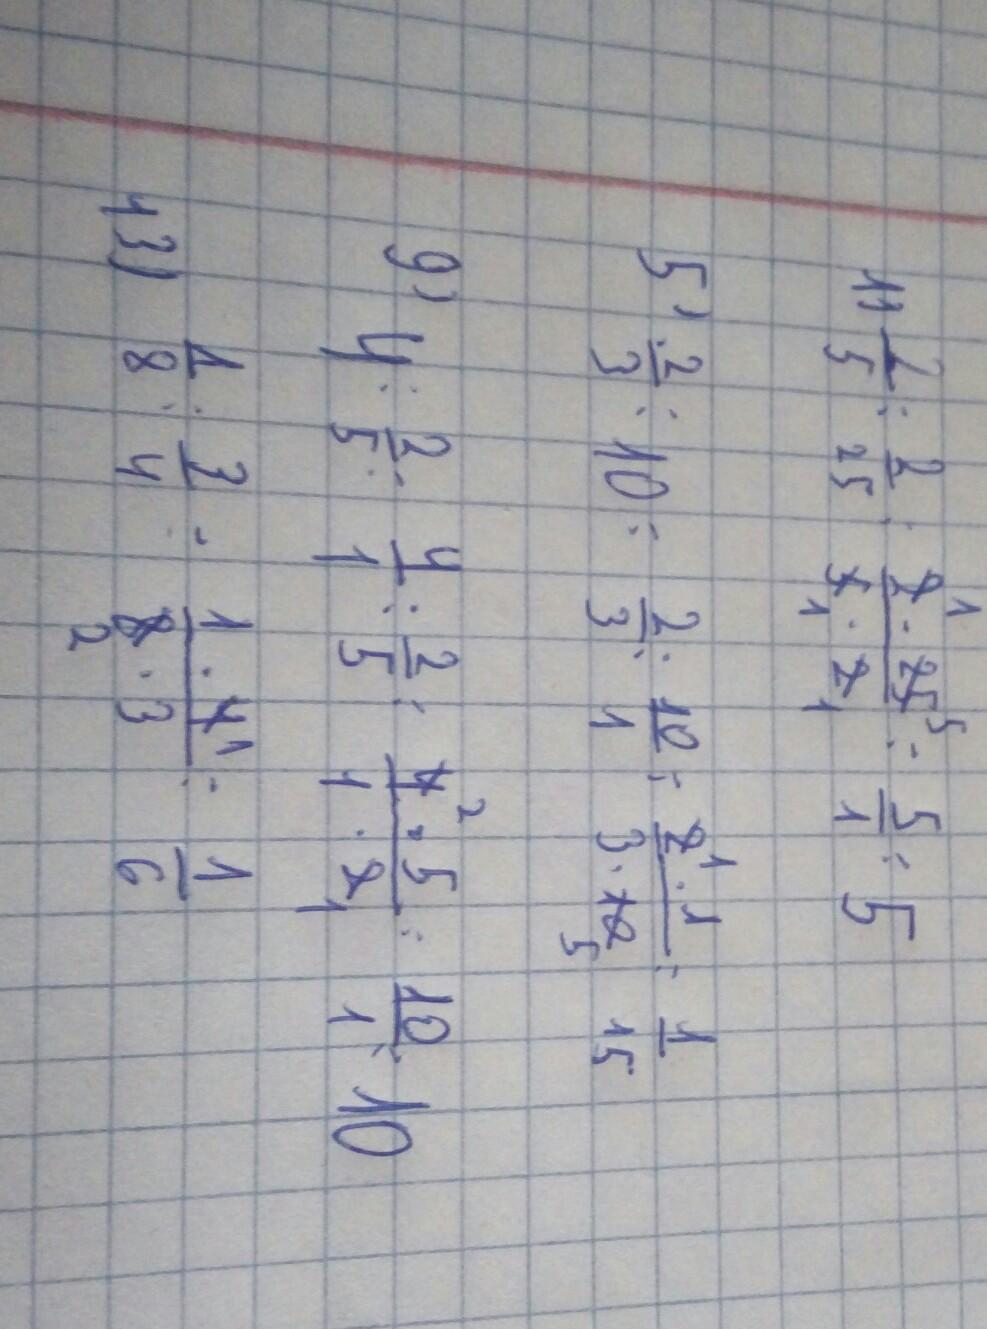 1) 2/5 : 2/25 = 2 · 25 / 5 · 2 = 5/1 = 5
5) 2/3 : 10 = 2/3 : 10/1 = 2 · 1 / 3 · 10 = 1/15
9) 4 : 2/5 = 4/1 : 2/5 = 4 · 5 / 1 · 2 = 10/1 = 10
13) 1/8 : 3/4 = 1 · 4 / 8 · 3 = 1/6